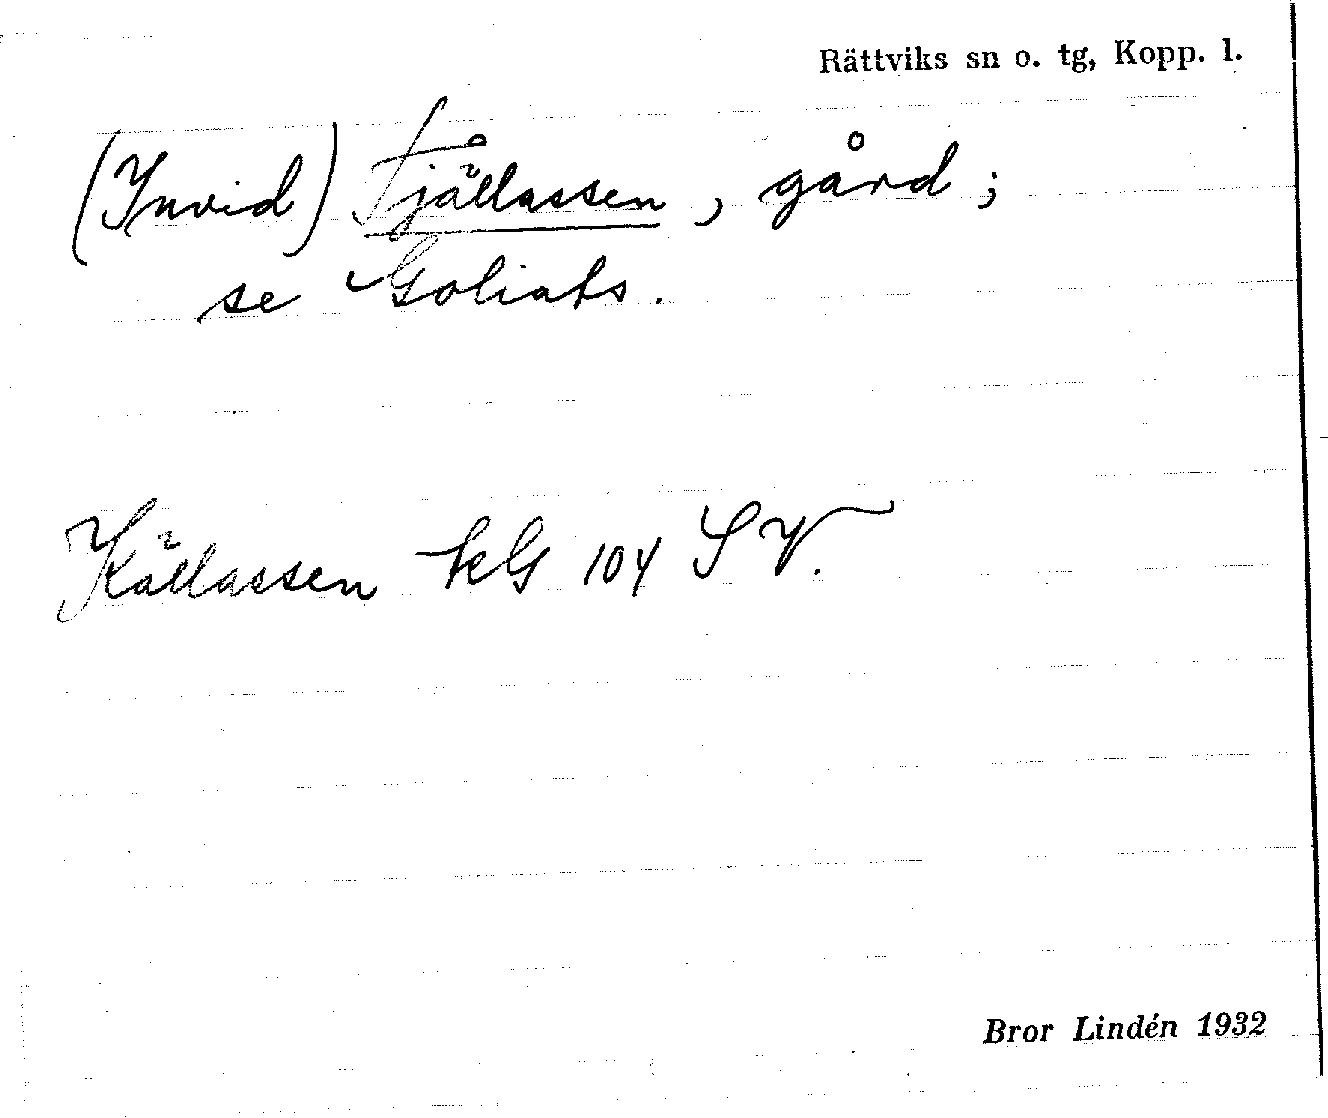 Rättviks sn o. tg, Kopp. l.
(Invid) Fjällassen, gård;
se Goliats.
Källassen tkG 104 SV.
Bror Lindén 1932